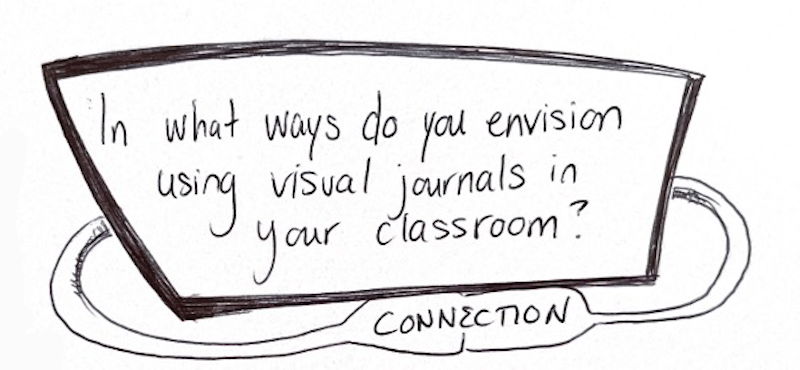 In what ways do you envision
using visual journals in
your classroom?
CONNECTION